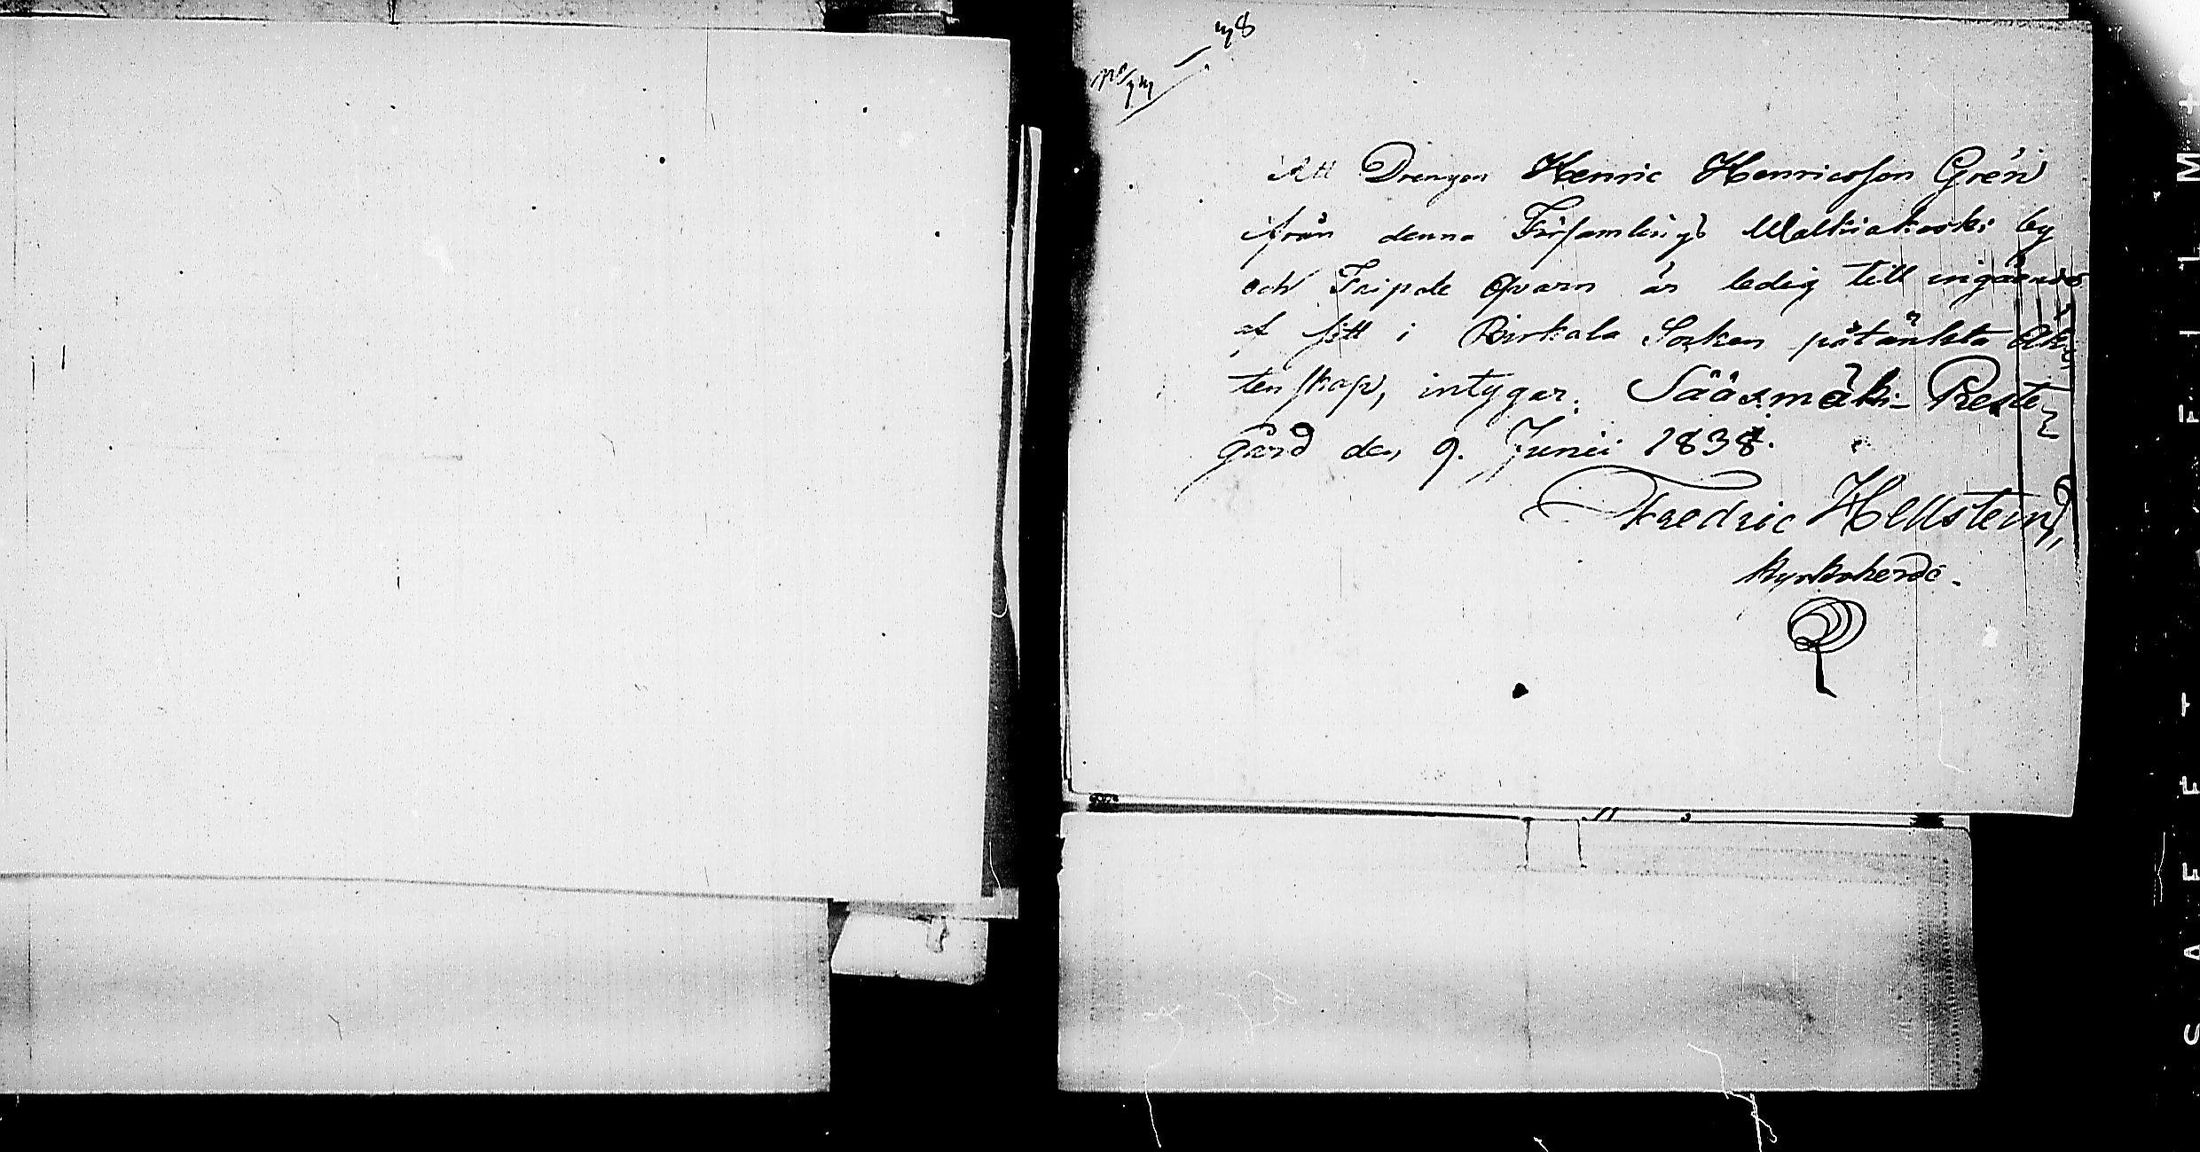 Att Drengen Henric Henricsson Grén
från denna Församlings Walkiakoski by
och Fripde Qvarn är ledig till ingående
af sitt i Birkala Socken påtänkta Äk-
tenskap, intygar. Sääxmäki Preste-
gård den 9. Junii 1838.
Fredric Hellsten,
Kyrkoherde.